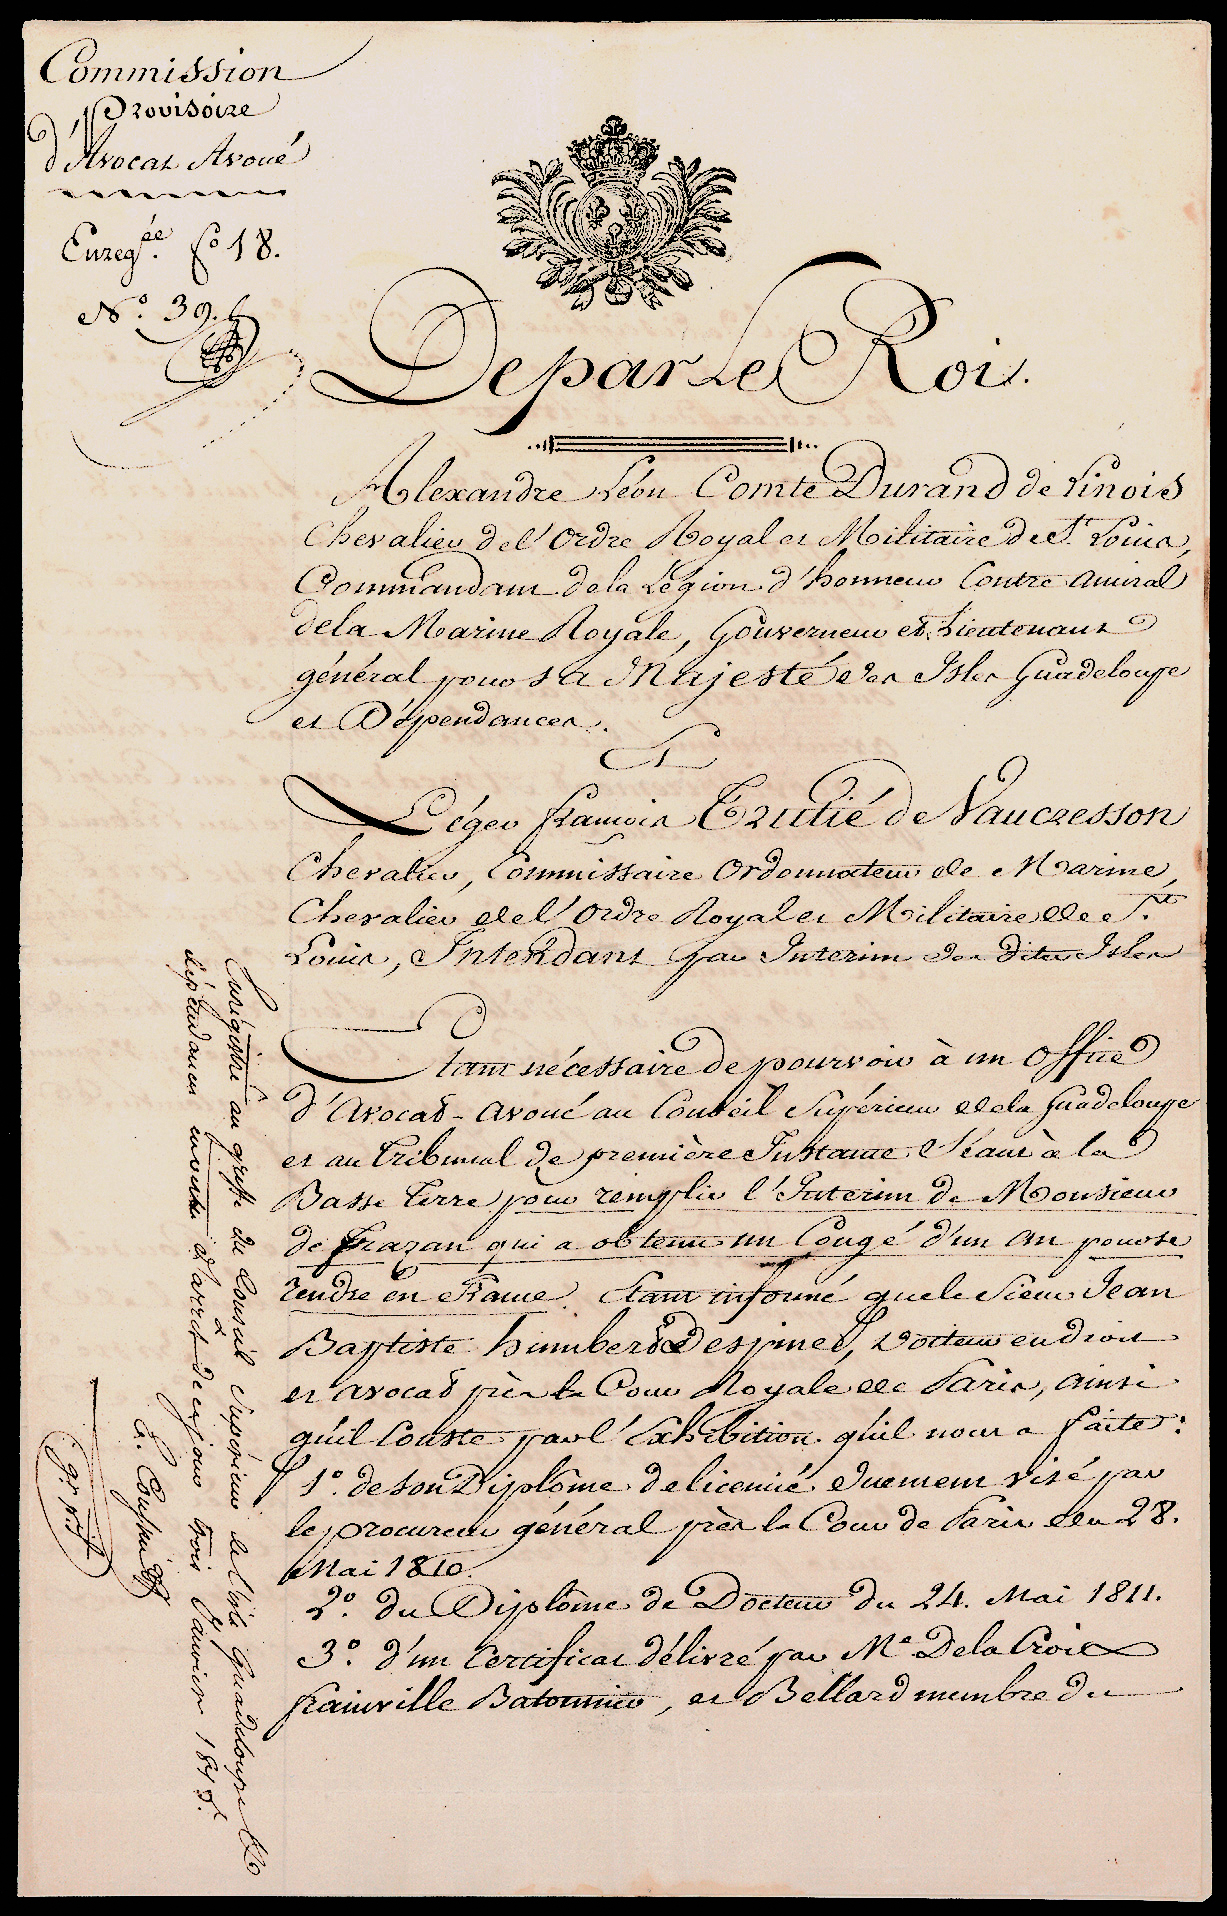 Commission
Provisoire
d'Avocat Avoué
Enreg.ée f.o 18.
N.o 39.
De par Le Roi.
Alexandre Léon Comte Durand de Linois
Chevalier de l'Ordre Royal et Militaire de St. Louis,
Commandant de la Légion d'honneur Contre amiral
de la Marine Royale, Gouverneur et Lieutenant
général pour sa Majesté des Isles Guadeloupe
et Dépendances.
&
Léger françois Trutié de Vaucresson
Chevalier, Commissaire Ordonnateur de Marine,
Chevalier de l'Ordre Royal et Militaire de St.
Louis, Intendant par Interim des dites Isles
Etant nécessaire de pourvoir à un Office
d'Avocat-avoué au Conseil Supérieur de la Guadeloupe
et au Tribunal de première Instance Séant à la
Basse Terre pour remplir l'Interim de Monsieur
de Frazan qui a obtenu un Congé d'un an pour se
rendre en France. Etant informé que le Sieur Jean
Baptiste humbert Despinet, Docteur en droit
et avocat près la Cour Royale de Paris, ainsi
qu'il Conste par l'Exhibition qu'il nous a faite:
1.o de son Diplôme de licencié duement visé par
le procureur général près la Cour de Paris du 28.
Mai 1810.
2.o du Diplôme de Docteur du 24. Mai 1811.
3.o d'un Certificat délivré par M.e Delacroix
frainville Batonnier, et Bellard membre du
Enrégistré au greffe du Conseil Supérieur de l'isle Guadeloupe &
dépendances en vertu d'arrêt de ce jour trois Janvier 1815.
gr. p.t